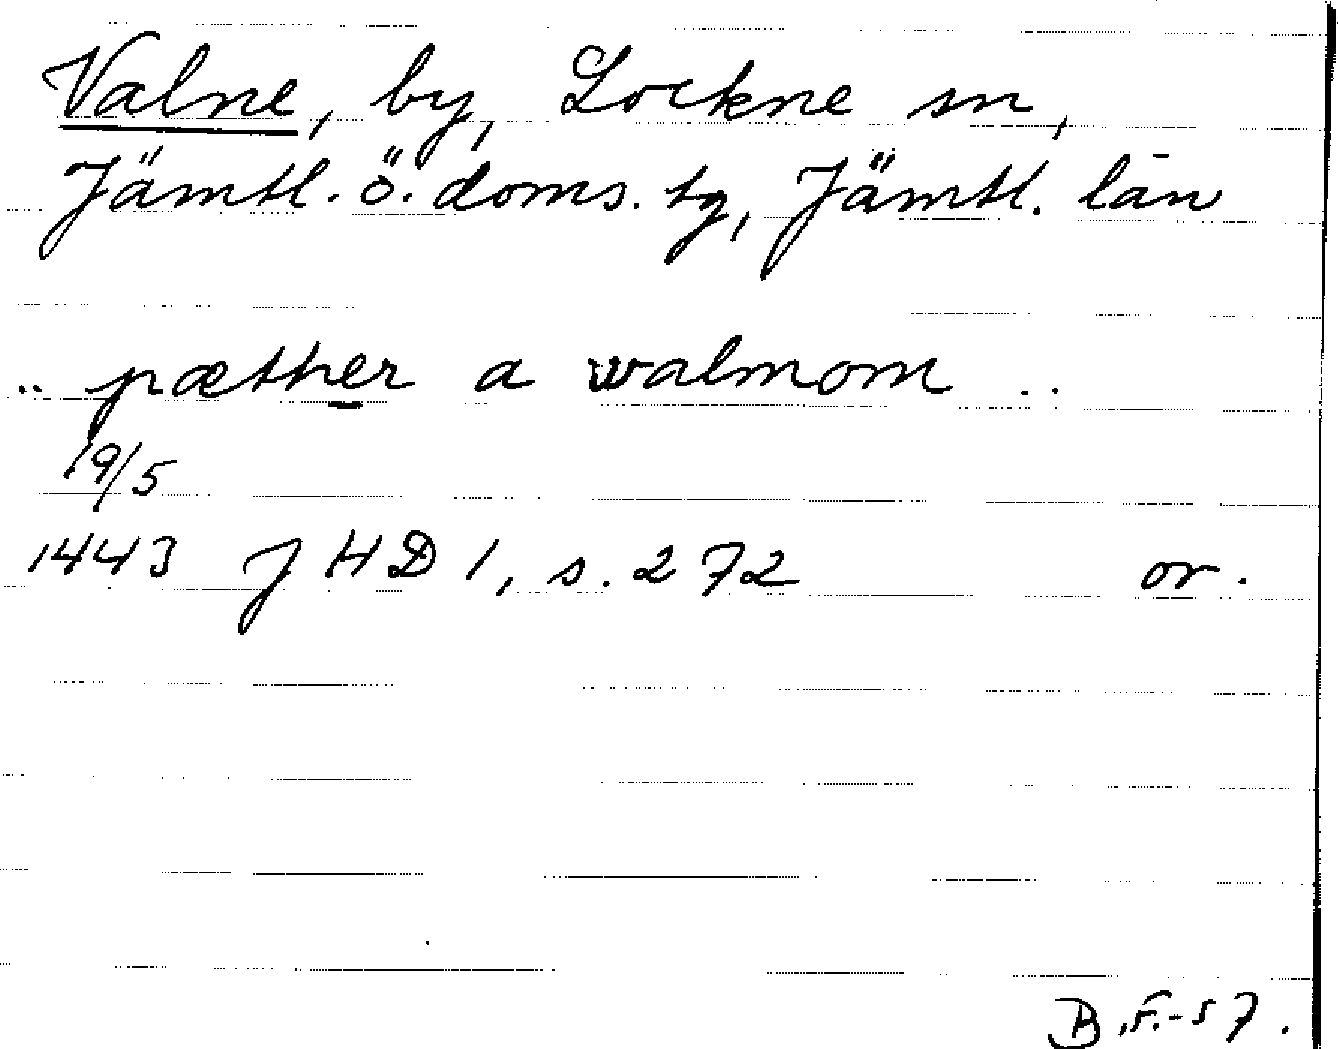 Valne, by, Lockne sn,
Jämtl. ö. doms. tg, Jämtl. län
.. pæther a walmom ..
19/5
1443 JHD 1, s. 272 or.
B.F.-57.